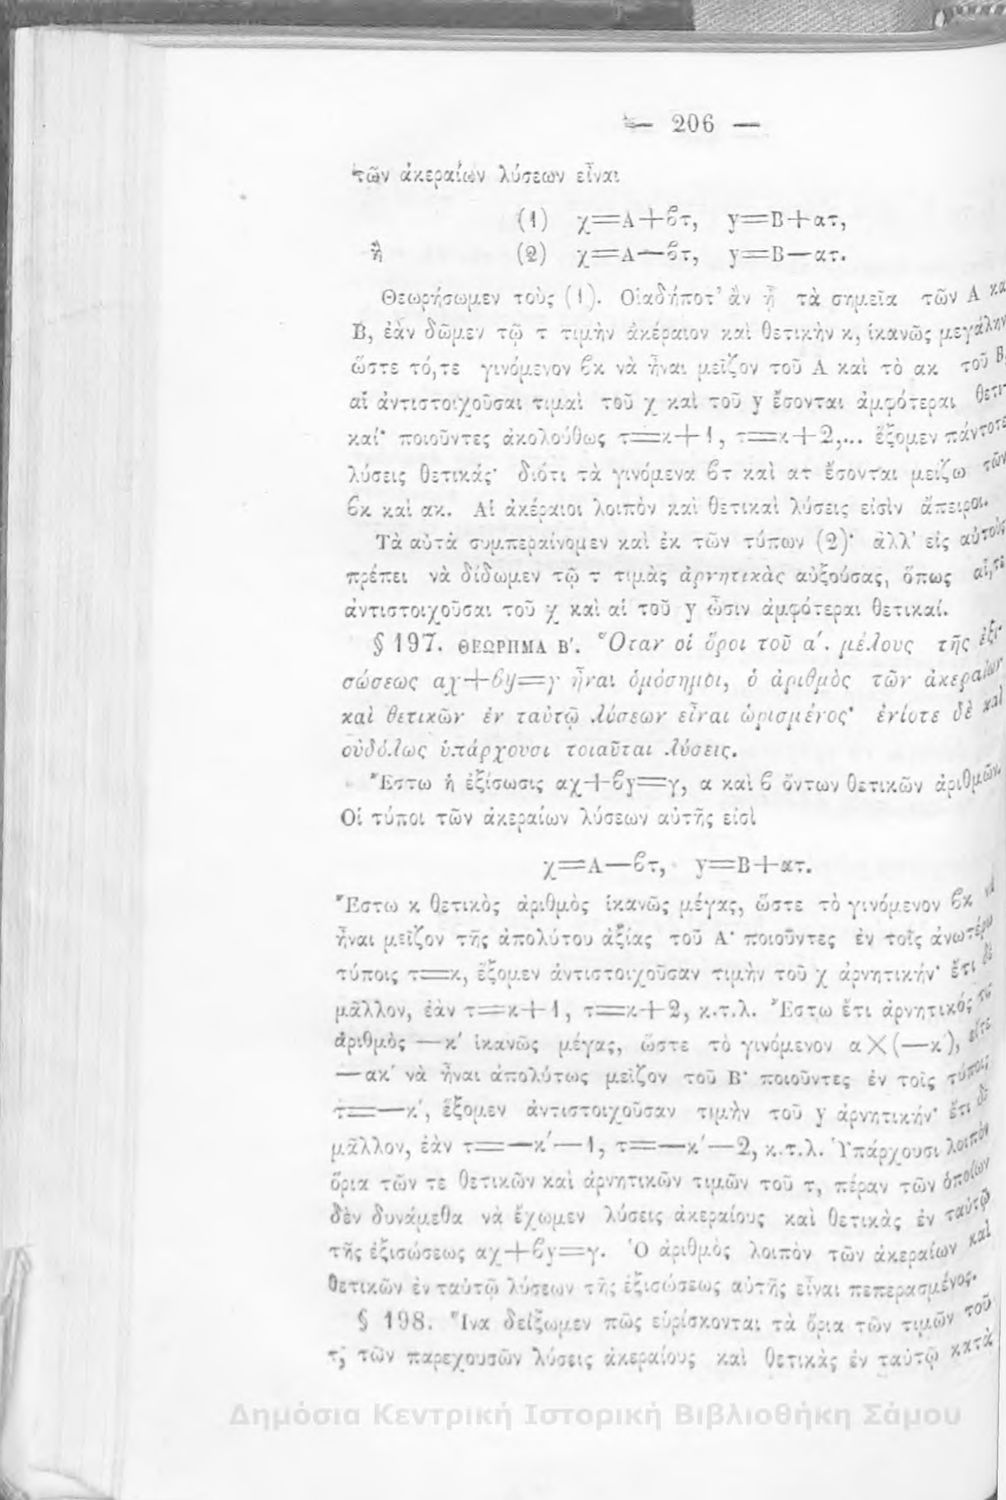 — 206 —
τῶν ἀκεραίων λύσεων εἶναι
(1) χ=Α+βτ, y=Β+ατ,
ἢ (2) χ=Α—βτ, y=Β—ατ.
Θεωρήσωμεν τοὺς (1). Οἱαδήποτ' ἂν ᾖ τὰ σημεῖα τῶν Α καὶ
Β, ἐὰν δῶμεν τῷ τ τιμὴν ἀκέραιον καὶ θετικὴν κ, ἱκανῶς μεγάλην
ὥστε τό,τε γινόμενον βκ νὰ ἦναι μεῖζον τοῦ Α καὶ τὸ ακ τοῦ Β,
αἱ ἀντιστοιχοῦσαι τιμαὶ τοῦ χ καὶ τοῦ y ἔσονται ἀμφότεραι θετι-
καί· ποιοῦντες ἀκολούθως τ=κ+1, τ=κ+2,... ἕξομεν πάντοτε
λύσεις θετικάς· διότι τὰ γινόμενα βτ καὶ ατ ἔσονται μείζω τῶν
βκ καὶ ακ. Αἱ ἀκέραιοι λοιπὸν καὶ θετικαὶ λύσεις εἰσὶν ἄπειροι.
Τὰ αὐτὰ συμπεραίνομεν καὶ ἐκ τῶν τύπων (2)· ἀλλ' εἰς αὐτοὺς
πρέπει νὰ δίδωμεν τῷ τ τιμὰς ἀρνητικὰς αὐξούσας, ὅπως αἵ,τε
ἀντιστοιχοῦσαι τοῦ χ καὶ αἱ τοῦ y ὦσιν ἀμφότεραι θετικαί.
§ 197. ΘΕΩΡΗΜΑ Β'. Ὅταν οἱ ὅροι τοῦ α'. μέλους τῆς ἐξι-
σώσεως αχ+βy=γ ἦναι ὁμόσημοι, ὁ ἀριθμὸς τῶν ἀκεραίων
καὶ θετικῶν ἐν ταὐτῷ λύσεων εἶναι ὡρισμένος· ἐνίοτε δὲ καὶ
οὐδόλως ὑπάρχουσι τοιαῦται λύσεις.
Ἔστω ἡ ἐξίσωσις αχ+βy=γ, α καὶ β ὄντων θετικῶν ἀριθμῶν.
Οἱ τύποι τῶν ἀκεραίων λύσεων αὐτῆς εἰσὶ
χ=Α—βτ, y=Β+ατ.
Ἔστω κ θετικὸς ἀριθμὸς ἱκανῶς μέγας, ὥστε τὸ γινόμενον βκ νὰ
ἦναι μεῖζον τῆς ἀπολύτου ἀξίας τοῦ Α· ποιοῦντες ἐν τοῖς ἀνωτέρω
τύποις τ=κ, ἕξομεν ἀντιστοιχοῦσαν τιμὴν τοῦ χ ἀρνητικήν· ἔτι δὲ
μᾶλλον, ἐὰν τ=κ+1, τ=κ+2, κ.τ.λ. Ἔστω ἔτι ἀρνητικός τις
ἀριθμὸς —κ' ἱκανῶς μέγας, ὥστε τὸ γινόμενον α×(—κ'), εἴτε
—ακ' νὰ ἦναι ἀπολύτως μεῖζον τοῦ Β· ποιοῦντες ἐν τοῖς τύποις
τ=—κ', ἕξομεν ἀντιστοιχοῦσαν τιμὴν τοῦ y ἀρνητικήν· ἔτι δὲ
μᾶλλον, ἐὰν τ=—κ'—1, τ=—κ'—2, κ.τ.λ. Ὑπάρχουσι λοιπὸν
ὅρια τῶν τε θετικῶν καὶ ἀρνητικῶν τιμῶν τοῦ τ, πέραν τῶν ὁποίων
δὲν δυνάμεθα νὰ ἔχωμεν λύσεις ἀκεραίους καὶ θετικὰς ἐν ταὐτῷ
τῆς ἐξισώσεως αχ+βy=γ. Ὁ ἀριθμὸς λοιπὸν τῶν ἀκεραίων καὶ
θετικῶν ἐν ταὐτῷ λύσεων τῆς ἐξισώσεως αὐτῆς εἶναι πεπερασμένος.
§ 198. Ἵνα δείξωμεν πῶς εὑρίσκονται τὰ ὅρια τῶν τιμῶν τοῦ
τ, τῶν παρεχουσῶν λύσεις ἀκεραίους καὶ θετικὰς ἐν ταὐτῷ κατὰ
Δημόσια Κεντρική Ιστορική Βιβλιοθήκη Σάμου